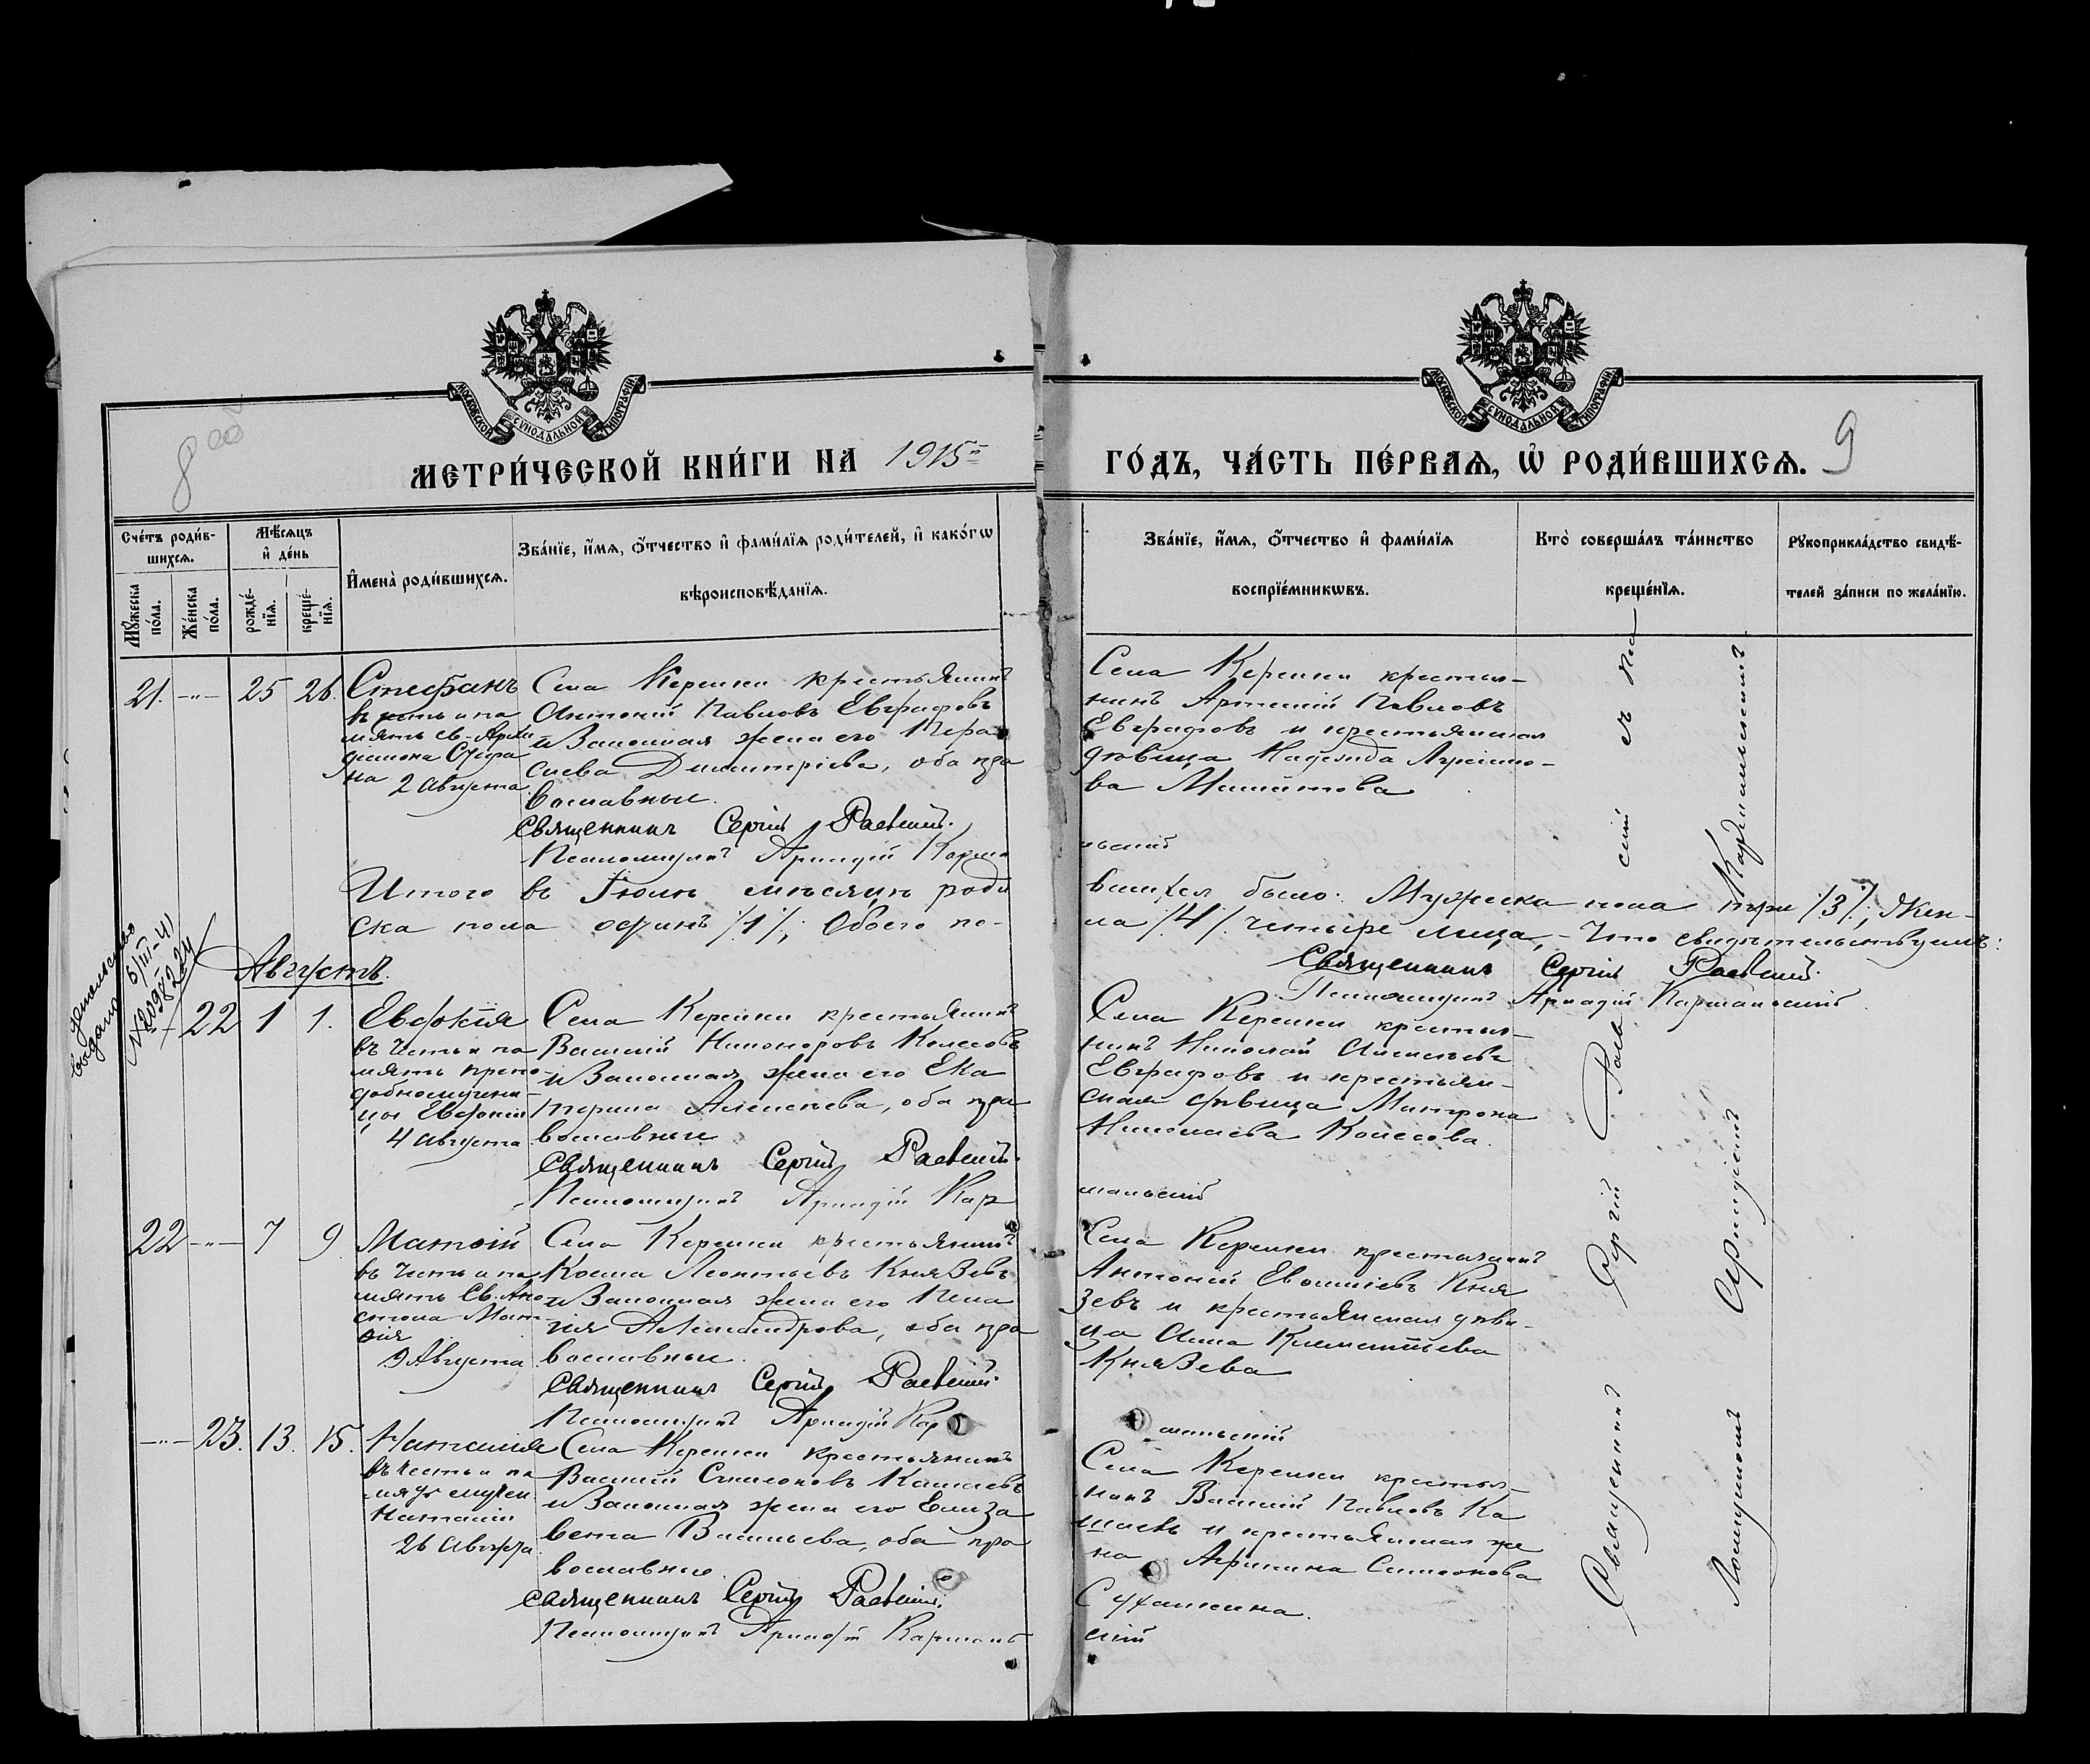 МОСКОВСКОЙ СѴНОДАЛЬНОЙ ТИПОГРАФІИ
МОСКОВСКОЙ СѴНОДАЛЬНОЙ ТИПОГРАФІИ
8
9
МЕТРИ́ЧЕСКОЙ КНИ́ГИ НА 1915
ГО́ДЪ, ЧА́СТЬ ПЕ́РВАѦ, Ѡ҆ РОДИ́ВШИХСѦ.
Сче́тъ роди́в-
шихсѧ.
Мꙋ́жеска по́ла.
Же́нска по́ла.
Мѣ́сѧцъ и҆ де́нь
рожде́-нїѧ.
креще́-нїѧ.
И҆мена̀ роди́вшихсѧ.
Зва́нїе, и҆́мѧ, ѻ҆́тчество и҆ фами́лїѧ роди́телей, и҆ како́гѡ
вѣроисповѣ́данїѧ.
Зва́нїе, и҆́мѧ, ѻ҆́тчество и҆ фами́лїѧ
воспрїе́мникѡвъ.
Кто̀ соверша́лъ та́инство
креще́нїѧ.
Рꙋкоприкла́дство свидѣ́-
телей за́писи по жела́нїю.
21. -"- 25 26. Стефанъ
въ честь и па
мять св. Архи
діакона Стефа
на 2 Августа
Села Керенки крестьянинъ
Антоній Павловъ Евграфовъ
и Законная жена его Пера
скева Димитріева, оба пра
вославные.
Священникъ Сергій Раевскій.
Псаломщикъ Аркадій Карма
Села Керенки крестья-
нинъ Артемій Павловъ
Евграфовъ и крестьянская
дѣвица Надежда
ва
льскій
Итого въ Іюлѣ мѣсяцѣ роди
вшихся было: Мужеска пола три /3/, Жен-
ска пола одинъ /1/, Обоего по-
ла /4/ четыре лица, - Что свидѣтельствуемъ:
Священникъ Сергій Раевскій.
Псаломщикъ Аркадій Кармальскій
Августъ.
выдано 6/III-41
22 1 1. Евдокія
въ честь и па
мять препо
добномучени
цы Евдокіи
4 Августа
Села Керенки крестьянинъ
Василій Никаноровъ Колесовъ
и Законная жена его Ека
терина Алексѣева, оба пра
вославные
Священникъ Сергій Раевскій.
Псаломщикъ Аркадій Кар
Села Керенки крестья-
нинъ Николай Алексѣевъ
Евграфовъ и крестьян-
ская дѣвица Матрона
Николаева Колесова.
мальскій
22 -"- 7 9 Матѳій
въ честь и па
мять Св. Апо
стола Мат
ѳія
9 Августа
Села Керенки крестьянинъ
Косма Леонтьевъ Князевъ
и Законная жена его Пела
гія Александрова, оба пра
вославные.
Священникъ Сергій Раевскій
Псаломщикъ Аркадій Кар
Села Керенки крестьянинъ
Антоній Кня
зевъ и крестьянская дѣви-
ца Анна Климентьева
Князева
мальскій
-"- 23. 13. 15. Наталія
въ честь и па
мять мучен
Наталіи
26 Августа
Села Керенки крестьянинъ
Василій Симеоновъ Камаевъ
и Законная жена его Елиза
вета Васильева, оба пра
вославные.
Священникъ Сергій Раевскій.
Псаломщикъ Аркадій Кармаль
Села Керенки крестья-
нинъ Василій Павловъ Ка
маевъ и крестьянская же
на Агрипина Симеонова
скій
Священникъ Сергій Раевскій съ пса
ломщикомъ Аркадіемъ Кармальскимъ